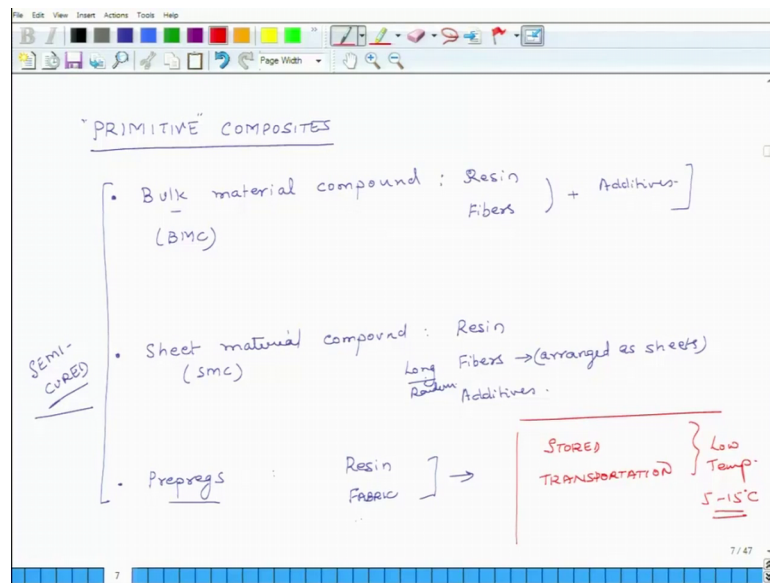 File Edit View Insert Actions Tools Help
B I
Page Width
"PRIMITIVE" COMPOSITES
• Bulk material compound : Resin
Fibers ) + Additives ]
(BMC)
SEMI-
CURED
• Sheet material compound : Resin
(SMC) Long Fibers → (arranged as sheets)
Random Additives.
• Prepregs : Resin
FABRIC ] →
STORED
TRANSPORTATION } Low
Temp.
5-15°C
7/47
7